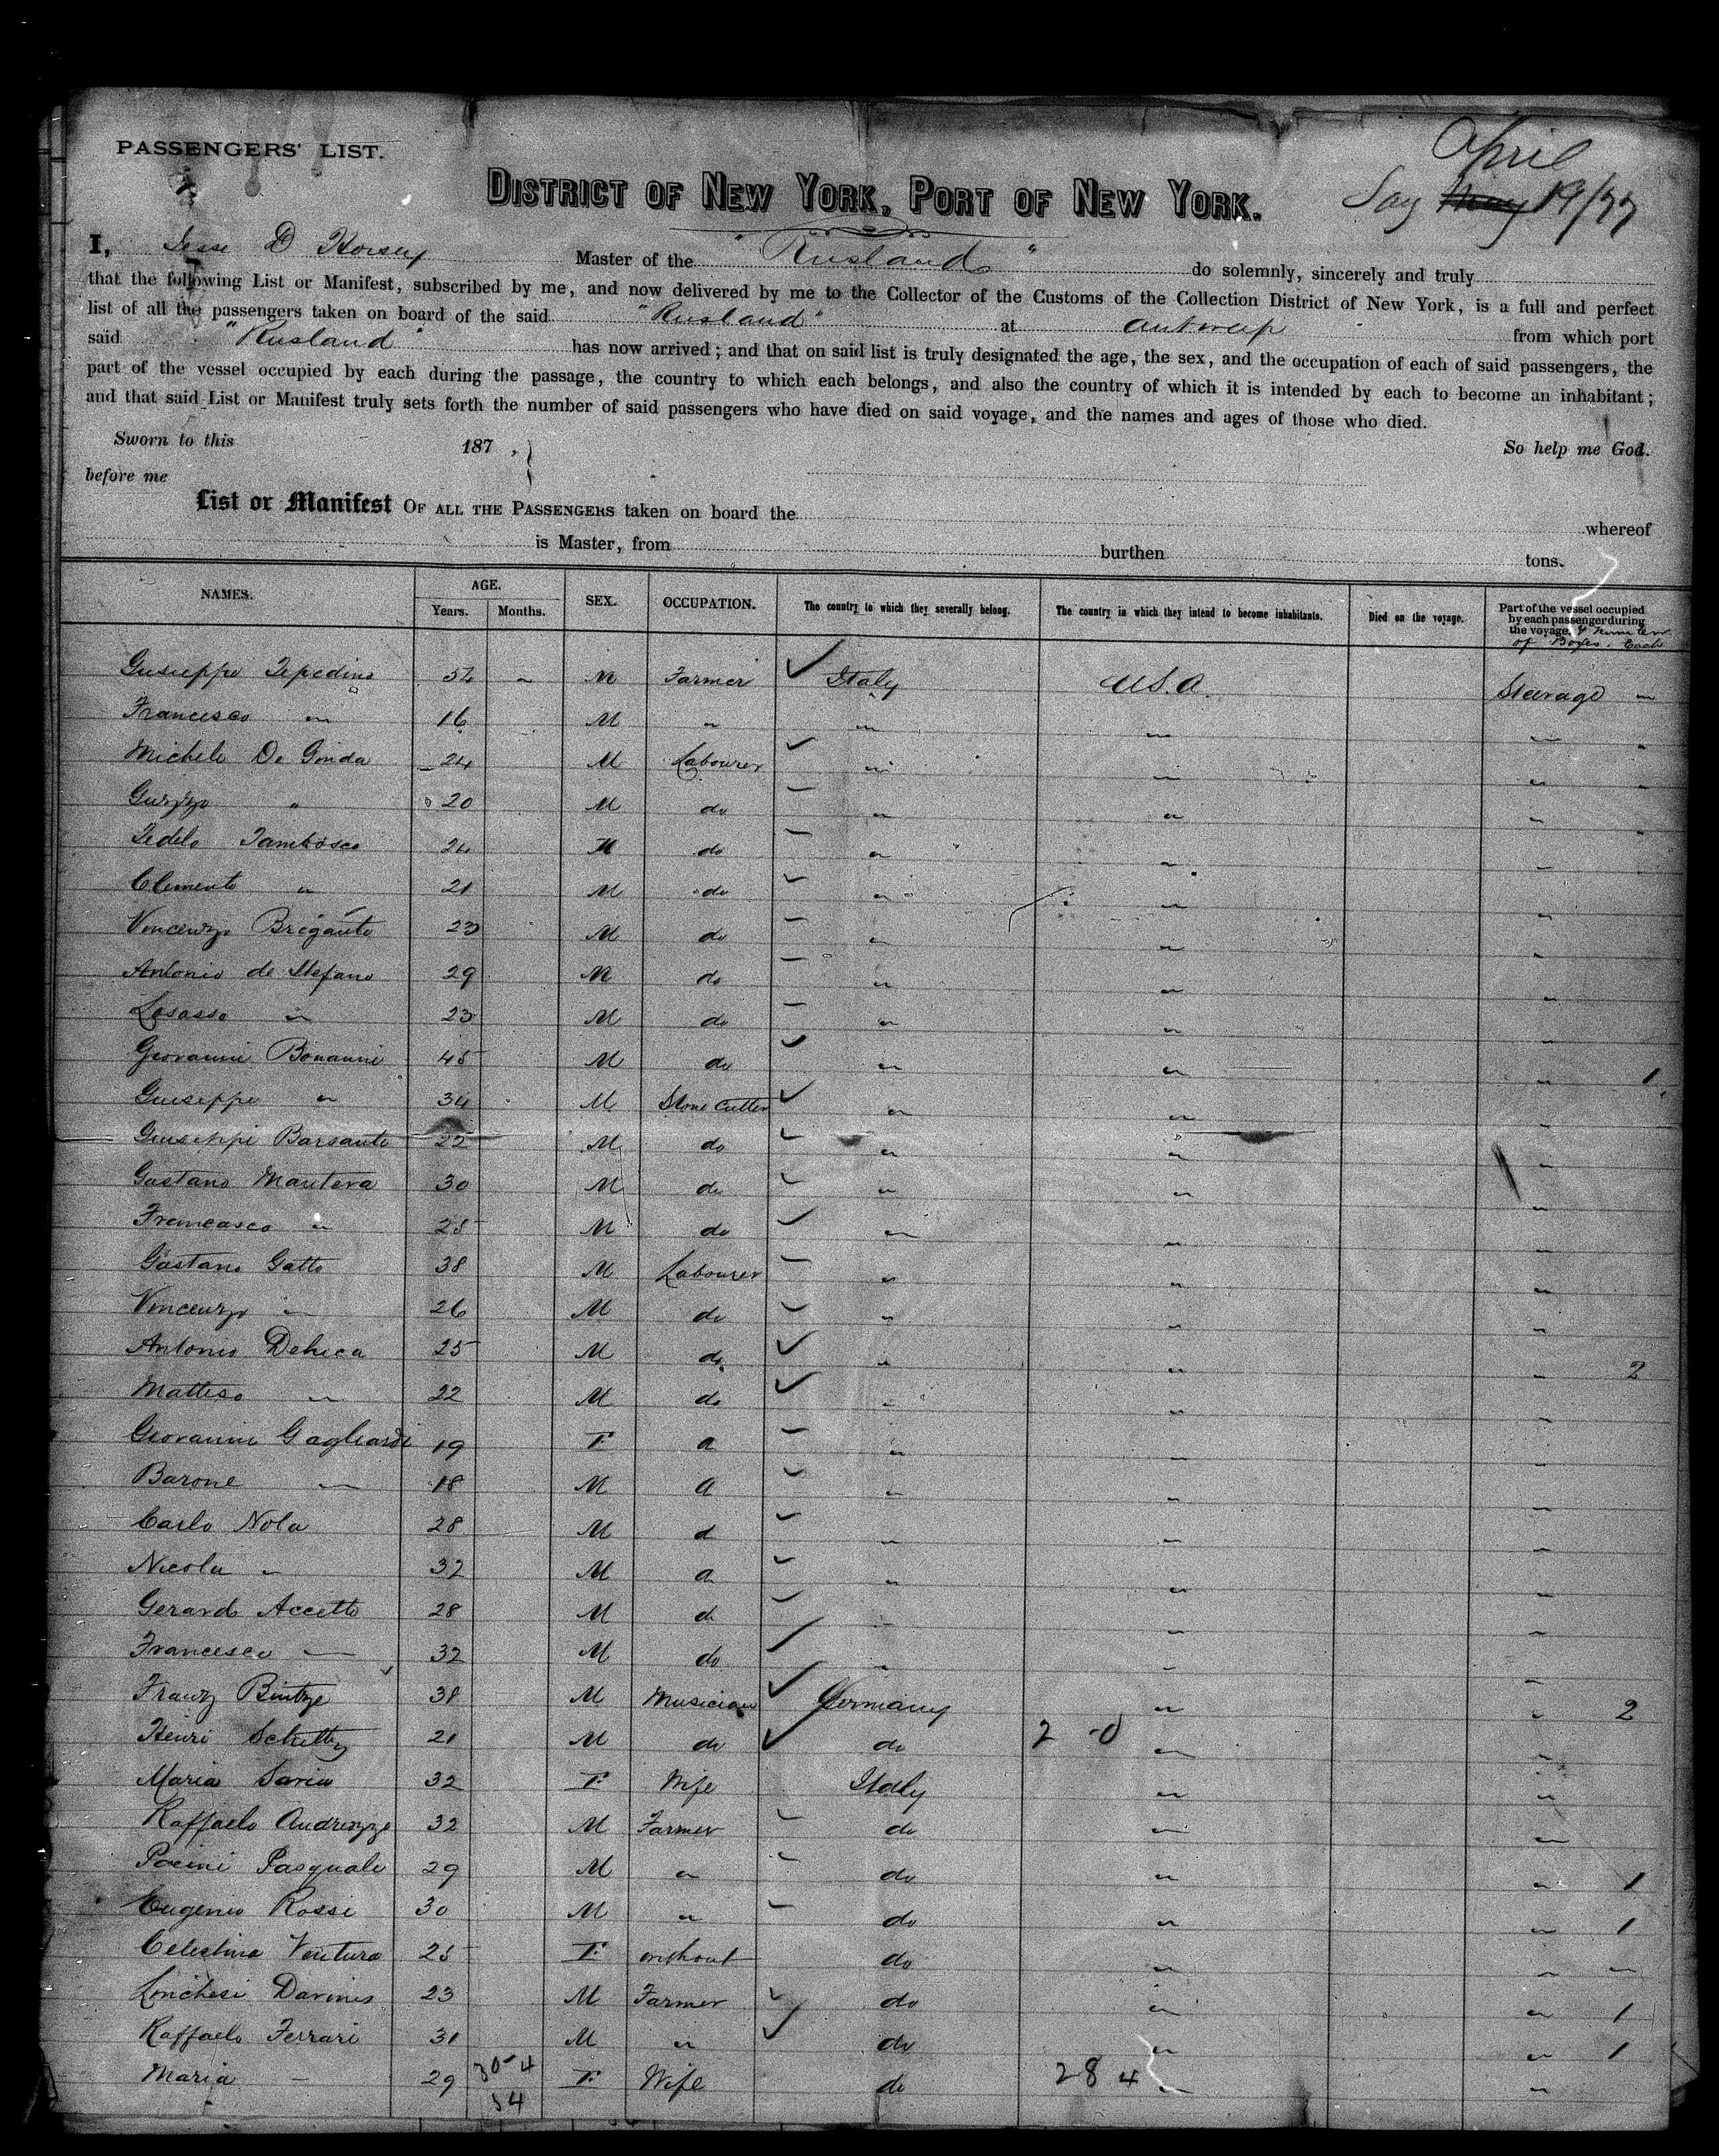 PASSENGERS' LIST.
April
Say May 19/77
DISTRICT OF NEW YORK, PORT OF NEW YORK.
I, Jesse D Horsey Master of the "Rusland" do solemnly, sincerely and truly
that the following List or Manifest, subscribed by me, and now delivered by me to the Collector of the Customs of the Collection District of New York, is a full and perfect
list of all the passengers taken on board of the said "Rusland" at Antwerp from which port
said "Rusland" has now arrived; and that on said list is truly designated the age, the sex, and the occupation of each of said passengers, the
part of the vessel occupied by each during the passage, the country to which each belongs, and also the country of which it is intended by each to become an inhabitant;
and that said List or Manifest truly sets forth the number of said passengers who have died on said voyage, and the names and ages of those who died.
Sworn to this 187 , So help me God.
before me
List or Manifest OF ALL THE PASSENGERS taken on board the whereof
is Master, from burthen tons.
NAMES. AGE. Years. Months. SEX. OCCUPATION. The country to which they severally belong. The country in which they intend to become inhabitants. Died on the voyage. Part of the vessel occupied by each passenger during the voyage. & number of Boxes. Each
Guiseppe Tepedino 54 " M Farmer Italy U.S.A. Steerage "
Francesco " 16 M " " " " "
Michele De 24 M Labourer " " " "
" 20 M do " " " "
Tambosco 24 M do " " "
Clemente " 21 M do " " "
Vincenzo Brigante 23 M do " " "
Antonio de Stefano 29 M do " " "
Losasso " 23 M do " " "
Giovanni Bonanni 45 M do " " " 1
Guiseppe " 34 M Stone Cutter " " "
Guiseppi Barsanto 22 M do " " "
Gaetano Mantera 30 M do " " "
Francesco " 25 M do " " "
Gaetano Gatto 38 M Labourer " " "
Vincenzo " 26 M do " " "
Antonio Deluca 25 M do " " " 2
Matteo " 22 M do " " "
Giovanni Gagliardi 19 F " " "
Barone " 18 M " " "
Carlo Nola 28 M d " " "
Nicola " 32 M " " "
Gerardo Accetto 28 M do " " "
Francesco " 32 M do " " "
Frantz Bintze 38 M Musician Germany " " 2
Henri 21 M do do 2 0 " "
Maria Saria 32 F Wife Italy " "
Raffaelo 32 M Farmer do " "
Pacini Pasquale 29 M " do " " 1
Eugenio Rossi 30 M " do " " 1
Celestina Ventura 25 F without do " " "
Davinis 23 M Farmer do " " 1
Raffaelo Ferrari 31 M " do " " 1
Maria " 29 F Wife do 28 4 " "
30 4
54